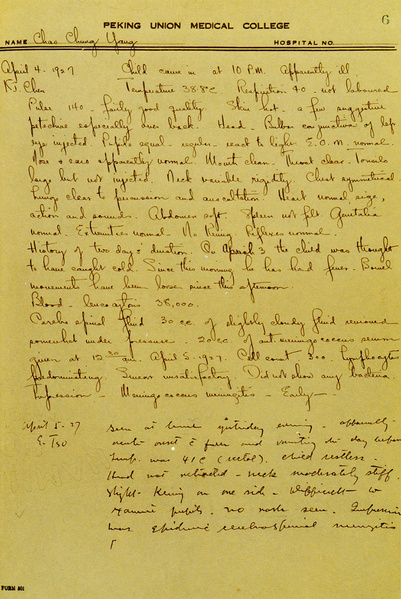 6
PEKING UNION MEDICAL COLLEGE
NAME Chao Chung Yang HOSPITAL NO.
April 4-1927 Child came in at 10 P.M. Apparently ill
Temperature 38.8°C Respiration 40 - not laboured
Pulse 140 - fairly good quality. Skin hot - a few suggestive
petechiae especially over back. Head - Bulbar conjunctiva of left
eye injected Pupils equal - regular - react to light. E.O.M. normal
Nose & ears apparently normal. Mouth clean. Throat clear. Tonsils
large but not injected. Neck variable rigidity. Chest symmetrical
Lungs clear to percussion and auscultation. Heart normal size,
action and sounds. Abdomen soft. Spleen not felt. Genitalia
normal. Extremities normal - No Kernig Reflexes normal.
History of two days duration. On April 3 the child was thought
to have caught cold. Since this morning he has had fever. Bowel
movements have been loose since this afternoon.
Blood - leucocytosis 38,000.
Cerebro spinal fluid 30 cc. of slightly cloudy fluid removed
somewhat under pressure. 20cc of antimeningococcus serum
given at 12 am. April 5-1927. Cell count 300. Lymphocytes
predominating. Smear unsatisfactory. Did not show any bacteria.
Impression - Meningococcus meningitis - Early
April 5-27 Seen at time yesterday evening - apparently
E. Tso onset & fever and vomiting the day before
Temp. was 41°C (rectal). Child restless.
Head not retracted - neck moderately stiff.
Slight Kernig on one side - difficult to
examine pupils. no rash seen. Impression
was epidemic cerebrospinal meningitis
FORM 801